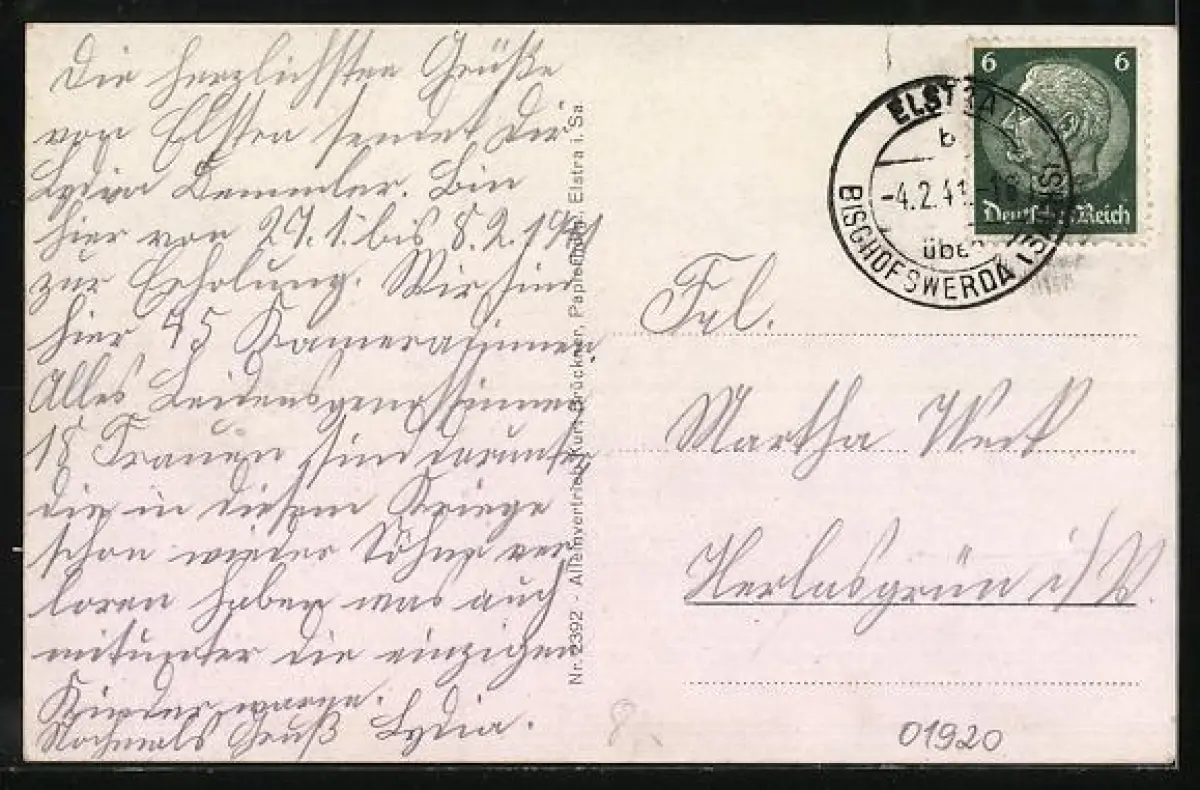 Die herzlichsten Grüße
von Elstra sendet Dir
Lydia Demmler. Bin
hier von 27.1. bis 8.2.1941
zur Erholung. Wir sind
hier 45 Kameradinnen
Alles Leidensgenossinnen
18 Frauen sind darunter
die in diesem Kriege
schon wieder Söhne ver
loren haben was auch
mitunter die einzigen
Kinder waren.
Nochmals Gruß Lydia.
Nr. 2392 - Alleinvertrieb: Kurt Brückner, Papierhdlg. Elstra i. Sa.
6 6
Deutsches Reich
ELSTRA
b
-4.2.41.-18
über
BISCHOFSWERDA (SACHS)
Frl.
Martha
Herlasgrün i/V.
01920